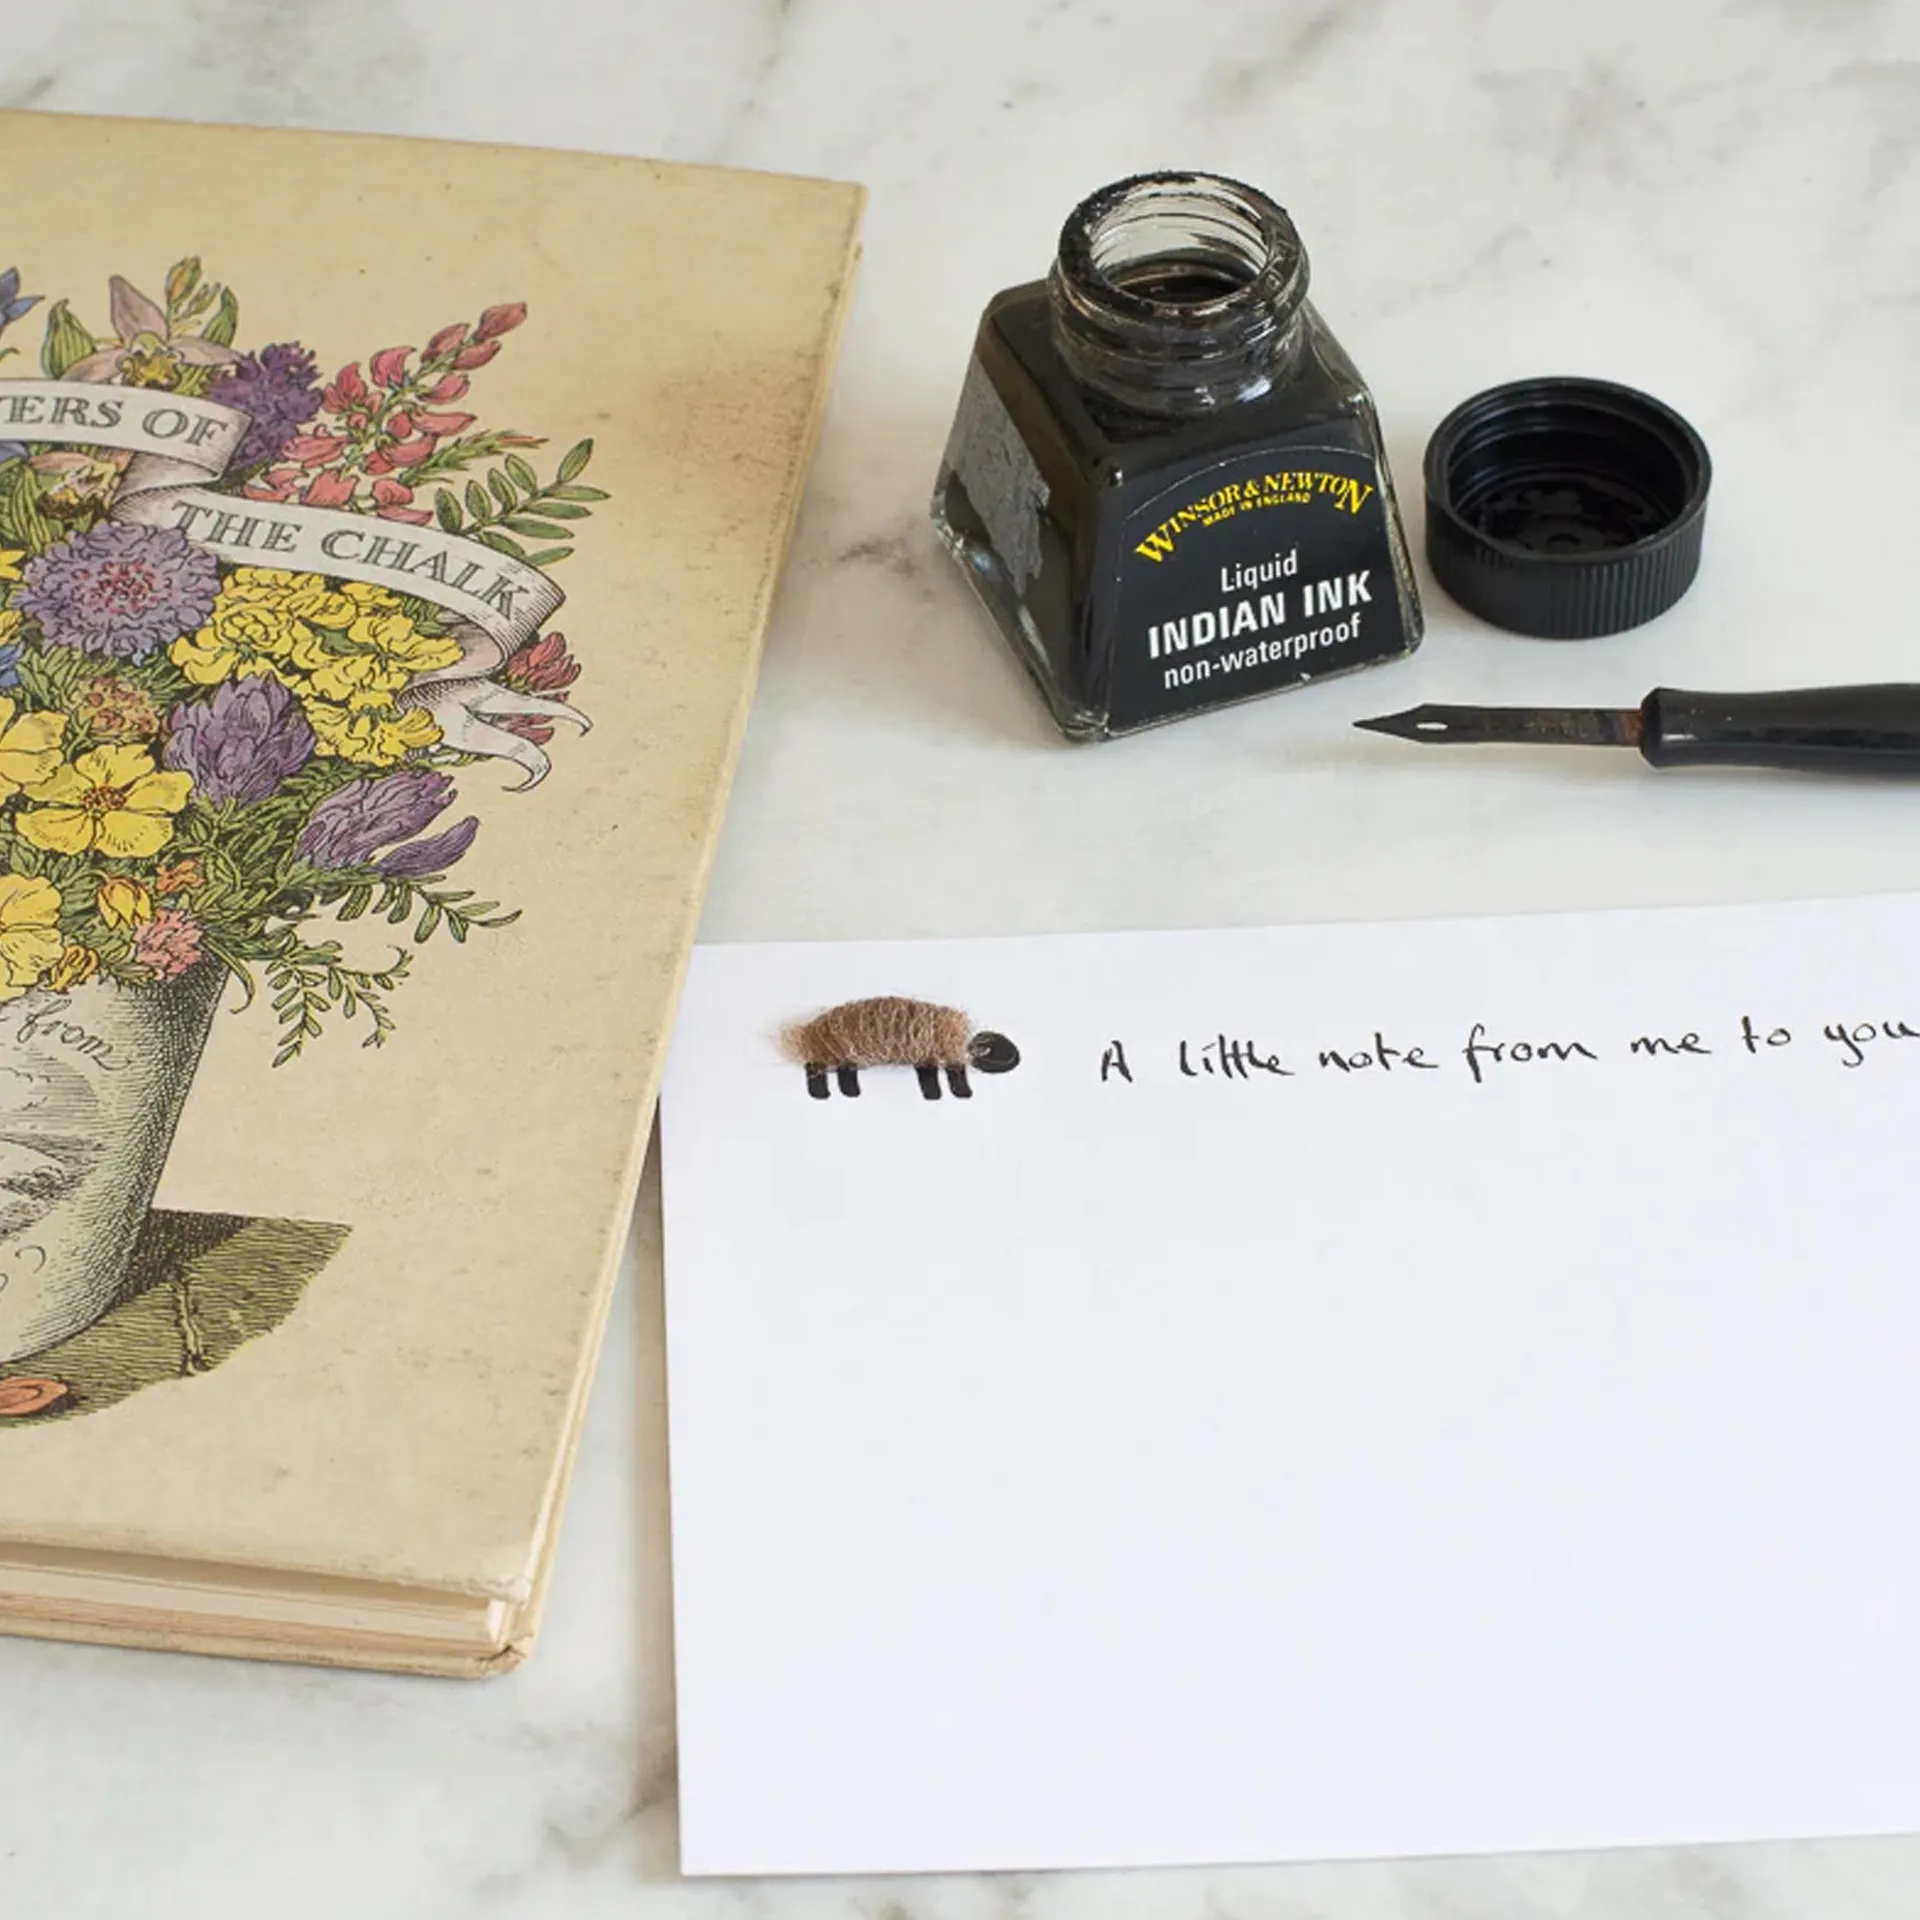 TERS OF
THE CHALK
from
WINSOR & NEWTON
MADE IN ENGLAND
Liquid
INDIAN INK
non-waterproof
A little note from me to you